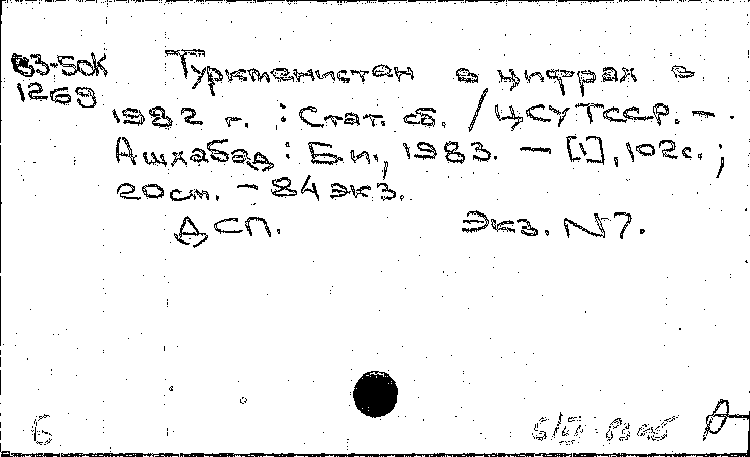 83-50К Туркменистан в цифрах в
1269 1982 г. : Стат. сб. / ЦСУ ТССР. — 
Ашхабад : Б.и., 1983. — [1], 102 с. ;
20 см. — 84 экз.
ДСП. Экз. N 7.
Б